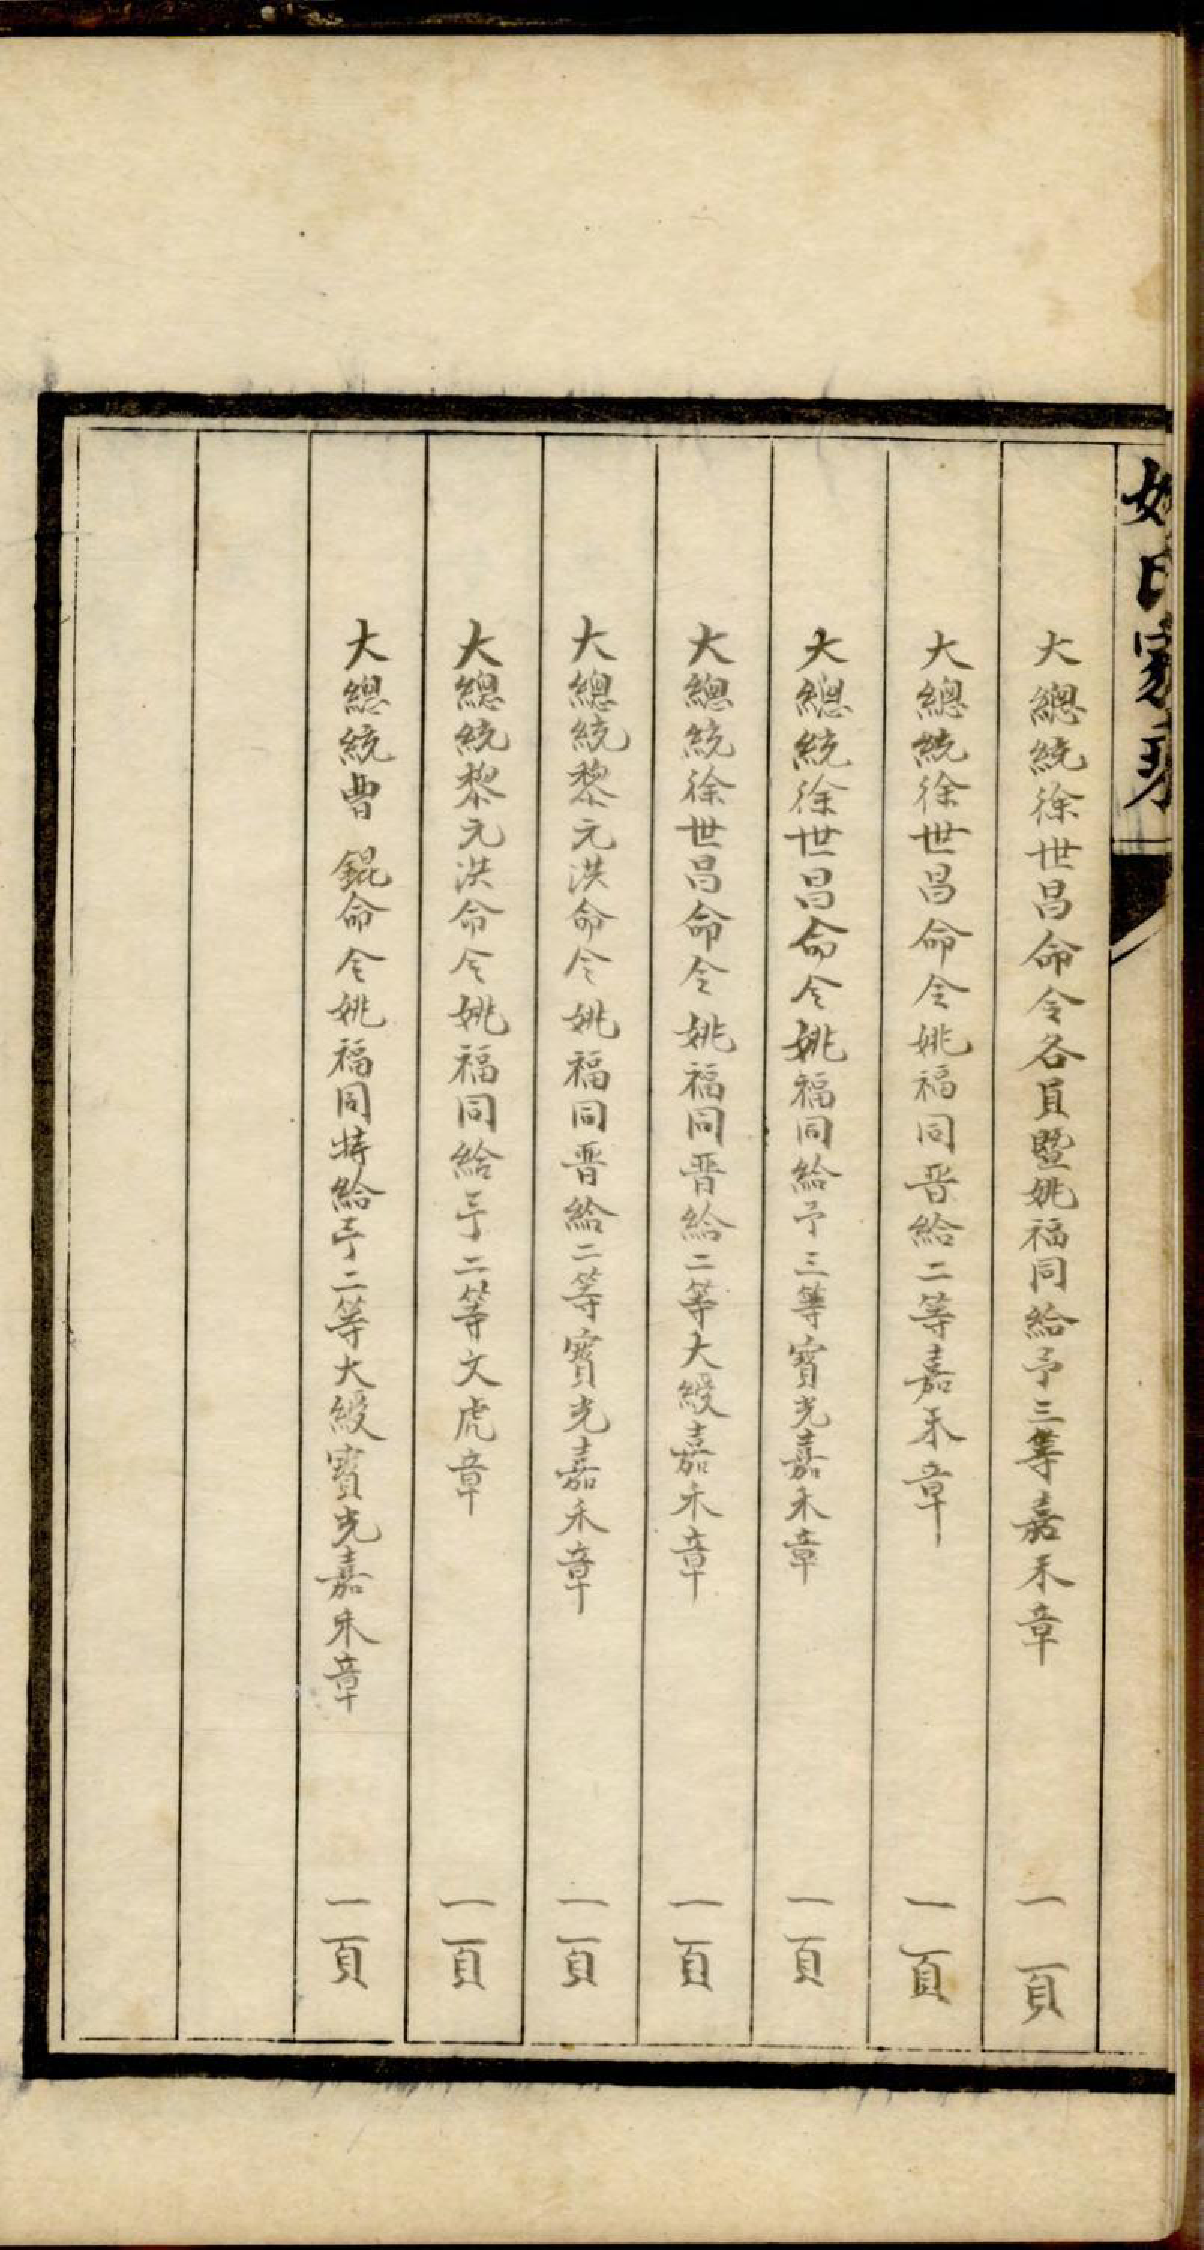 姚氏家乘
大總統徐世昌命令各員暨姚福同給予三等嘉禾章 一頁
大總統徐世昌命令姚福同晋給二等嘉禾章 一頁
大總統徐世昌命令姚福同給予三等寶光嘉禾章 一頁
大總統徐世昌命令姚福同晋給二等大綬嘉禾章 一頁
大總統黎元洪命令姚福同晋給二等寶光嘉禾章 一頁
大總統黎元洪命令姚福同給予二等文虎章 一頁
大總統曹 錕命令姚福同特給予二等大綬寶光嘉禾章 一頁